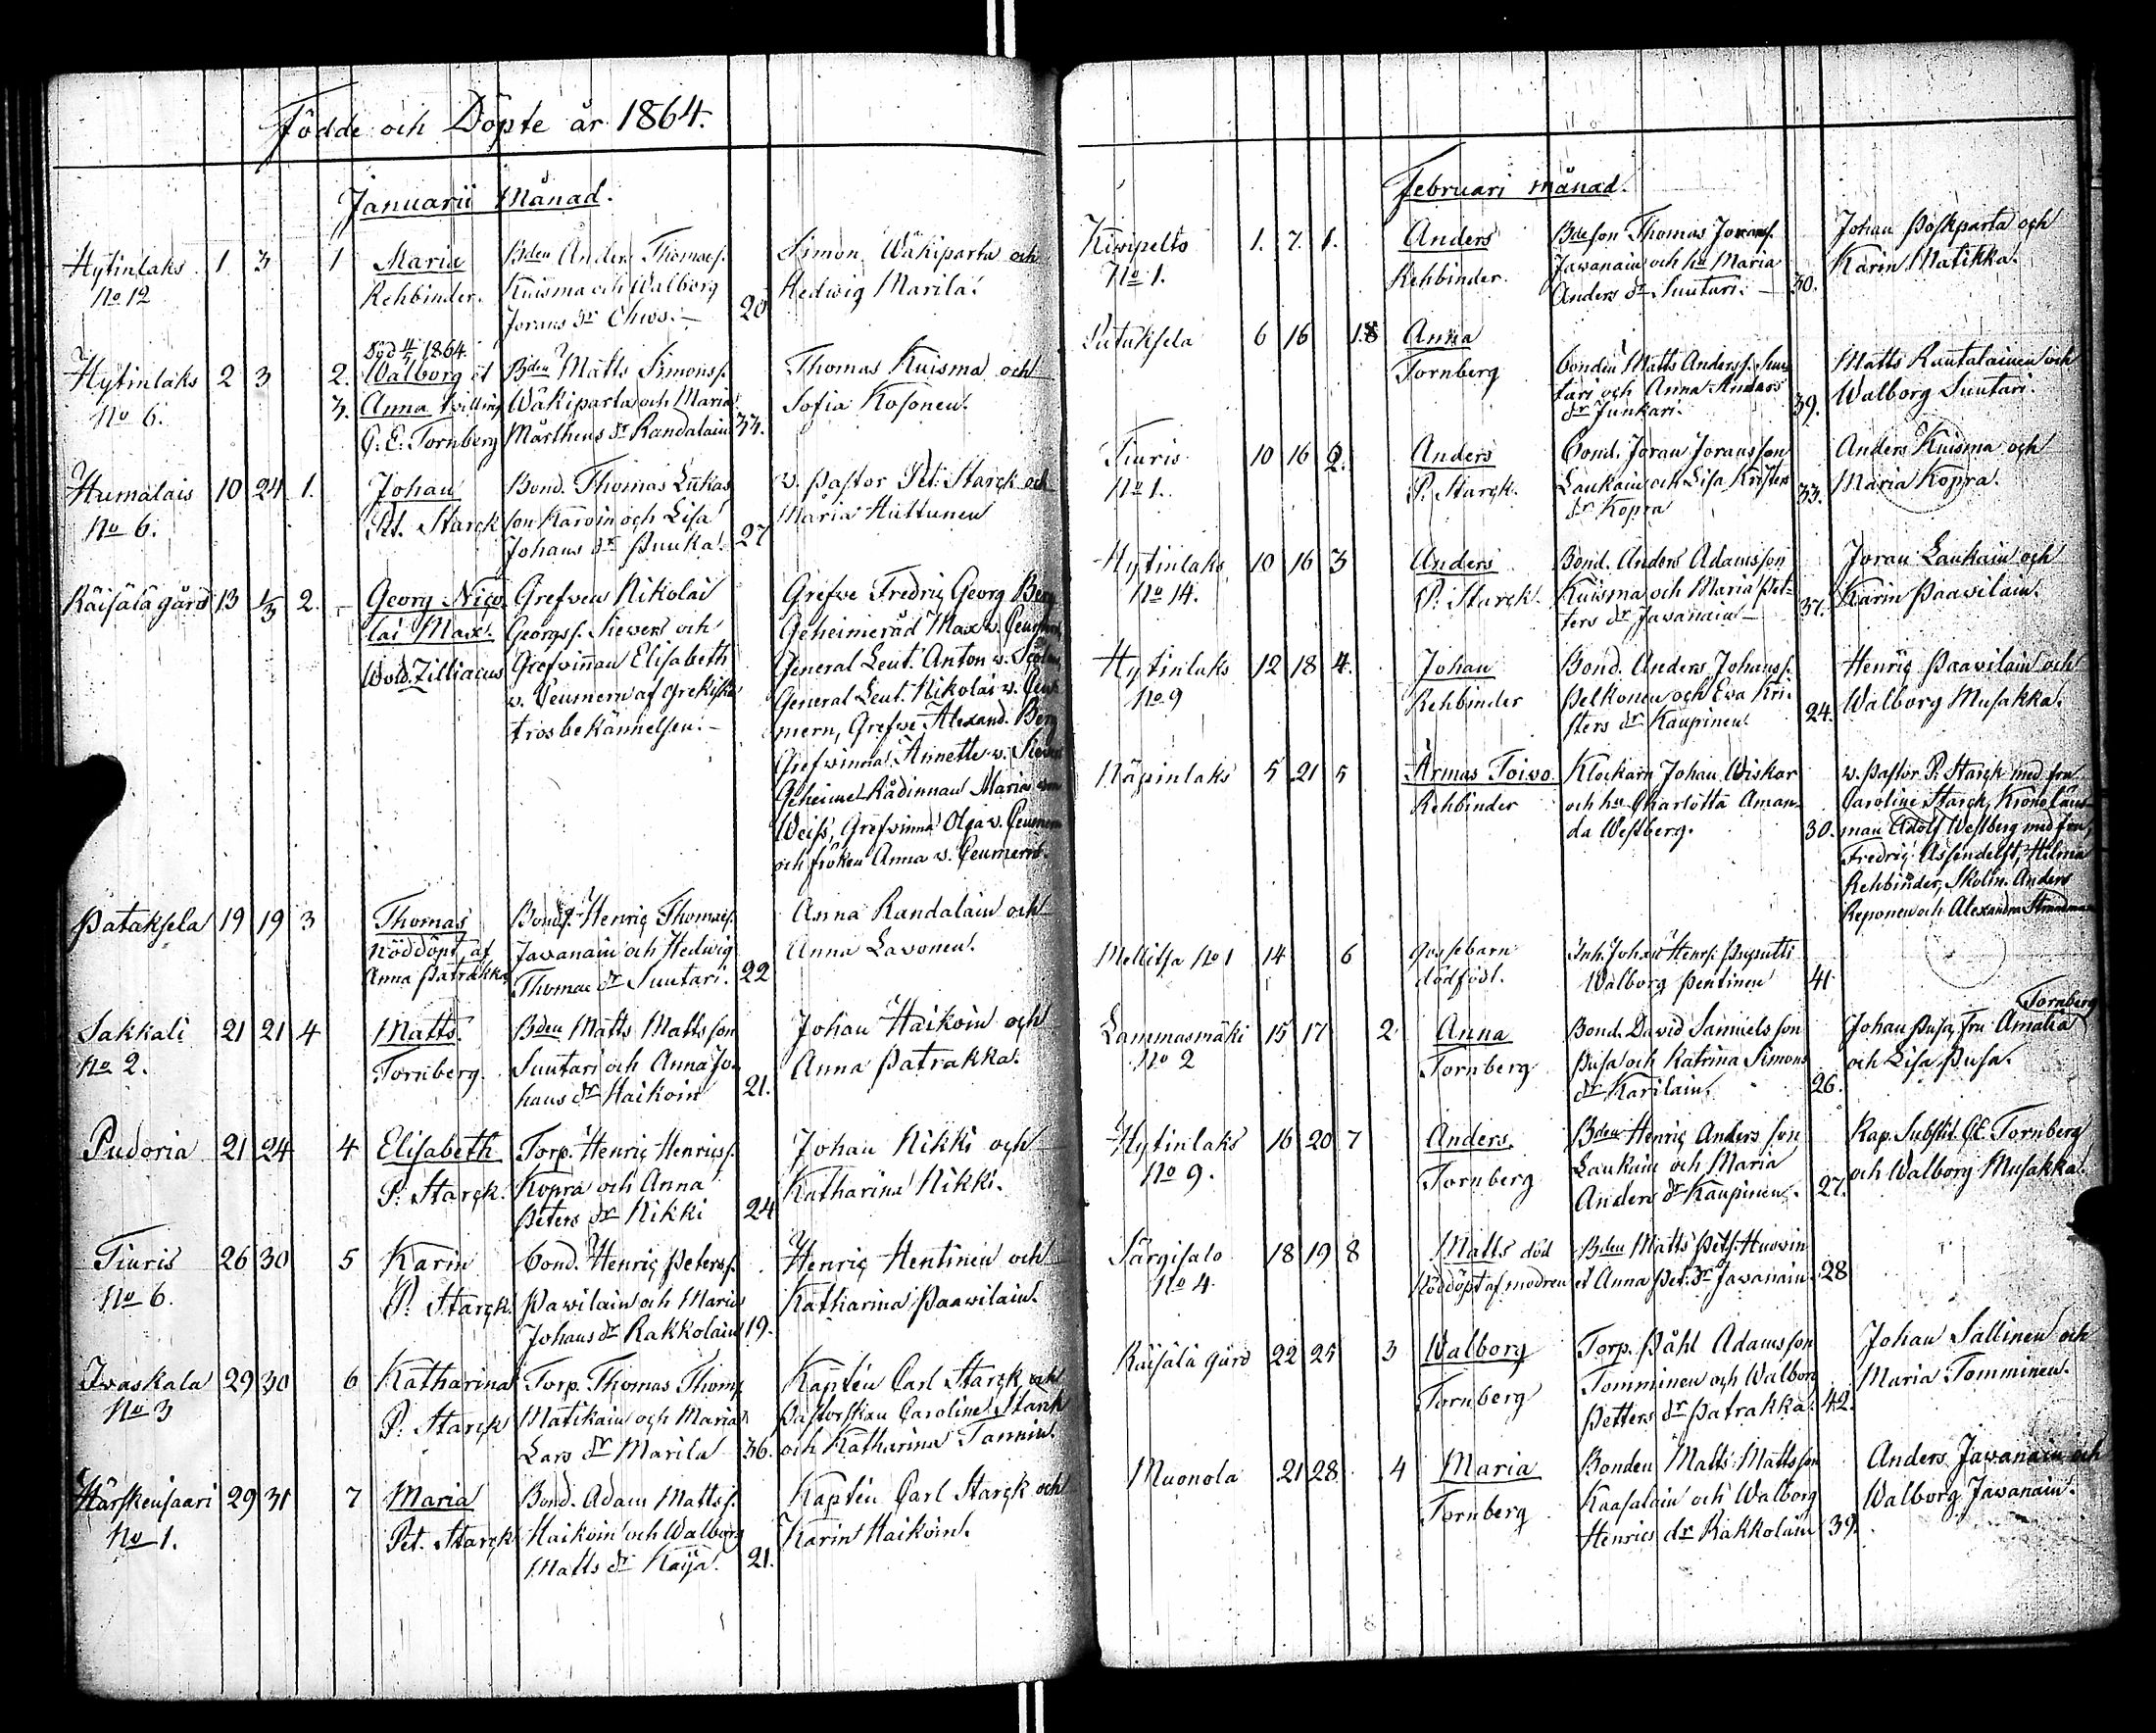 Födde och Döpte år 1864.
Januarii Månad.
Hytinlaks 1 3 1 Maria Bden Anders Thomæs. Simon Wäkiparta och
No 12 Rehbinder. Kuisma och Walborg Hedwig Marila.
Jorans dr Chws. 20
Död 11/5 1864.
Hytinlaks 2 3 2. Walborg et Bden Matts Simonss. Thomas Kuisma och
No 6. 3. Anna tvilling Wäkiparta och Maria Sofia Kosonen.
G. E. Tornberg Mårthens dr Randalain 33.
Humalais 10 24 1. Johan Bond. Thomas Lukas v. Pastor Pet. Starck och
No 6. Pt. Starck son Karvin och Lisa Maria Huttunen
Johans dr Puuka. 27
Räisälä gård 13 1/3 2. Georg Nico Grefven Nikolai Grefve Fredric Georg Berg
lai Max. Georgss. Siewers och Geheimeråd Max v.
Wold. Zilliacus Grefvinnan Elisabeth General Leut. Anton v.
v. Peumern af grekiska General Leut. Nikolai v.
trosbekännelsen. mern, Grefve Alexand. Berg
Grefvinna Annette v.
Geheime Rådinnan Maria von
Weiss, Grefvinna Olga v. Peumern
och fröken Anna v. Peumern.
Pataksela 19 19 3 Thomas Bondes. Henric Thomæs. Anna Randalain och
Nöddöpt af Javanain och Hedwig Anna Lavonen.
Anna Patrakka Thomæ dr Suutari. 22
Sakkali 21 21 4 Matts. Bden Matts Mattsson Johan Haikoin och
No 2. Tornberg. Suutari och Anna Jo- Anna Patrakka.
hans dr Haikoin 21.
Pudoria 21 24 4 Elisabeth Torp. Henric Henricss. Johan Nikki och
P. Starck. Kopra och Anna Katharina Nikki.
Peters dr Nikki 24
Tiuris 26 30 5 Karin Bond. Henric Peterss. Henric Hentinen och
No 6. P. Starck. Pawilain och Maria Katharina Paawilain.
Johans dr Rakkolain 19.
Ivaskala 29 30 6 Katharina Torp. Thomas Thoms. Kaptén Carl Starck och
No 3 P. Starck Matikain och Maria Pastorskan Caroline Starck
Lars dr Marila 36. och Katharina Tannin.
Härskensaari 29 31 7 Maria Bond. Adam Mattss. Kaptén Carl Starck och
No 1. Pet. Starck Haikoin och Walborg Karin Haikoin.
Matts dr Kaija. 21.
Februari månad.
Kiwipelto 1. 7. 1. Anders Bdeson Thomas Joranss. Johan Poskparta och
No 1. Rehbinder. Javanain och hu Maria Karin Matikka.
Anders dr Suutari. 30.
6 16 1. Anna
Tornberg Bonden Matts Anderss. Suu Matts Rantalainen och
tari och Anna Anders Walborg Suutari.
dr Junkari. 39.
Tiuris 10 16 2. Anders Bond. Joran Joransson Anders Kuisma och
No 1. P. Starck. Laukain och Lisa Kristers Maria Kopra.
dr Kopra 33.
Hytinlaks 10 16 3 Anders Bond. Anders Adamsson Joran Laukain och
No 14. P. Starck. Kuisma och Maria Pet- Karin Paawilain.
ters dr Javanain 37.
Hytinlaks 12 18 4. Johan Bond. Anders Johanss. Henric Paavilain och
No 9 Rehbinder Pelkonen och Eva Kri- Walborg Musakka.
sters dr Kaupinen. 24.
Näpinlaks 5 21 5 Armas Toivo Klockarn Johan Wiskar v. Pastor P. Starck med fru
Rehbinder och hu Charlotta Aman- Caroline Starck, Kronoläns-
da Westberg. 30. man Adolf Westberg med fru,
Fredric Assendelft, Hilma
Rehbinder, Skolin. Anders
Reponen och Alexandra
Mellitsa No 1 14 6 Gossebarn Inh. Johan Henrs. Pupulti
dödfödt. Walborg Pentinen 41
Tornberg
Lammasmäki 15 17 2 Anna Bond. David Samuelsson Johan Pusa, fru Amalia
No 2 Tornberg Pusa och Katrina Simons och Lisa Pusa.
dr Karilain. 26.
Hytinlaks 16 20 7 Anders. Bden Henric Andersson Kap. Substit. G E. Tornberg
No 9. Tornberg Laukain och Maria och Walborg Musakka.
Anders dr Kaupinen. 27.
Särgisalo 18 19 8 Matts död Bden Matts Pets. Huovin
No 4. Nöddöpt af modren et Anna Pet. dr Javanain. 28
Räisälä gård 22 25 3 Walborg Torp. Påhl Adamsson Johan Sallinen och
Tornberg Tomminen och Walborg Maria Tomminen.
Petters dr Patrakka. 42.
Muonola 21 28 4 Maria Bonden Matts Mattsson Anders Javanain och
Tornberg Kaasalain och Walborg Walborg Javanain.
Henrics dr Rakkolain 39.